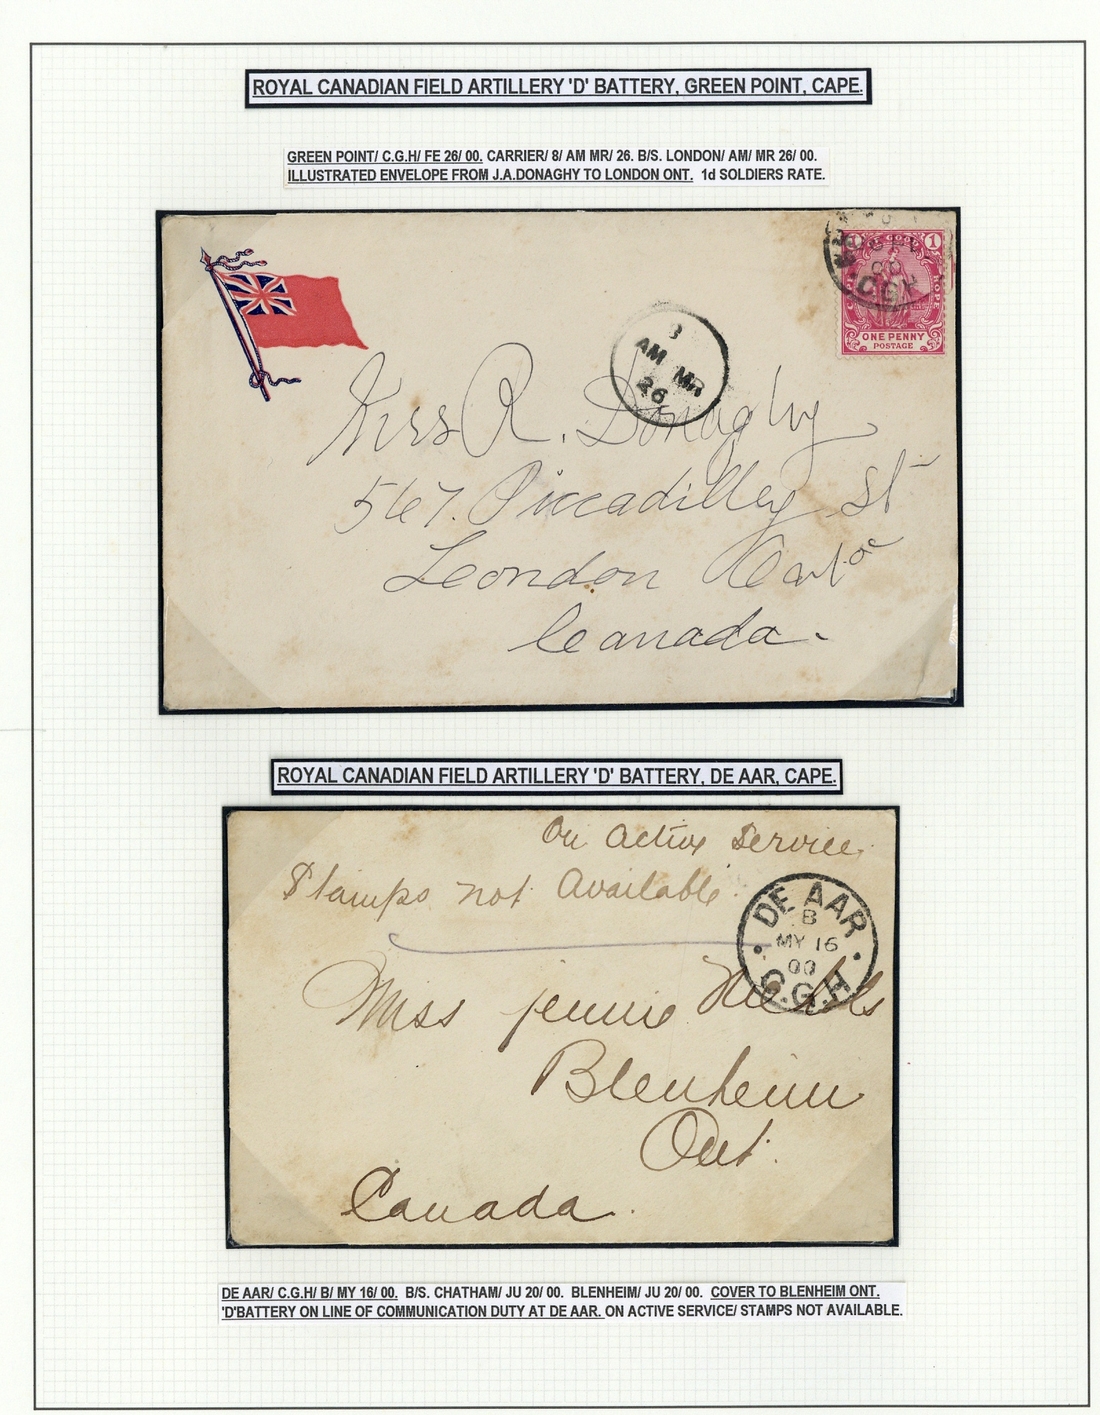 ROYAL CANADIAN FIELD ARTILLERY 'D' BATTERY, GREEN POINT, CAPE.
GREEN POINT/ C.G.H/ FE 26/ 00. CARRIER/ 8/ AM MR/ 26. B/S. LONDON/ AM/ MR 26/ 00.
ILLUSTRATED ENVELOPE FROM J.A.DONAGHY TO LONDON ONT. 1d SOLDIERS RATE.
1 1
ONE PENNY
POSTAGE
CGH
AM MR
26
Mrs R. Donaghy
567. Piccadilley St
London Ontario
Canada.
ROYAL CANADIAN FIELD ARTILLERY 'D' BATTERY, DE AAR, CAPE.
On Active Service.
Stamps not Available.
DE AAR
B
MY 16
00
C.G.H
Miss Jennie
Blenheim
Ont.
Canada.
DE AAR/ C.G.H/ B/ MY 16/ 00. B/S. CHATHAM/ JU 20/ 00. BLENHEIM/ JU 20/ 00. COVER TO BLENHEIM ONT.
'D'BATTERY ON LINE OF COMMUNICATION DUTY AT DE AAR. ON ACTIVE SERVICE/ STAMPS NOT AVAILABLE.